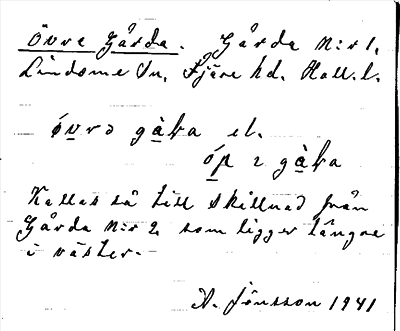 Övre Gårda. Gårda N:r 1,
Lindome Sn, Fjäre hd. Hall. l.
óvrə gàka el.
óp 2 gàka
Kallas så till skillnad från
Gårda N:r 2, som ligger längre
i väster.
A. Jönsson 1941